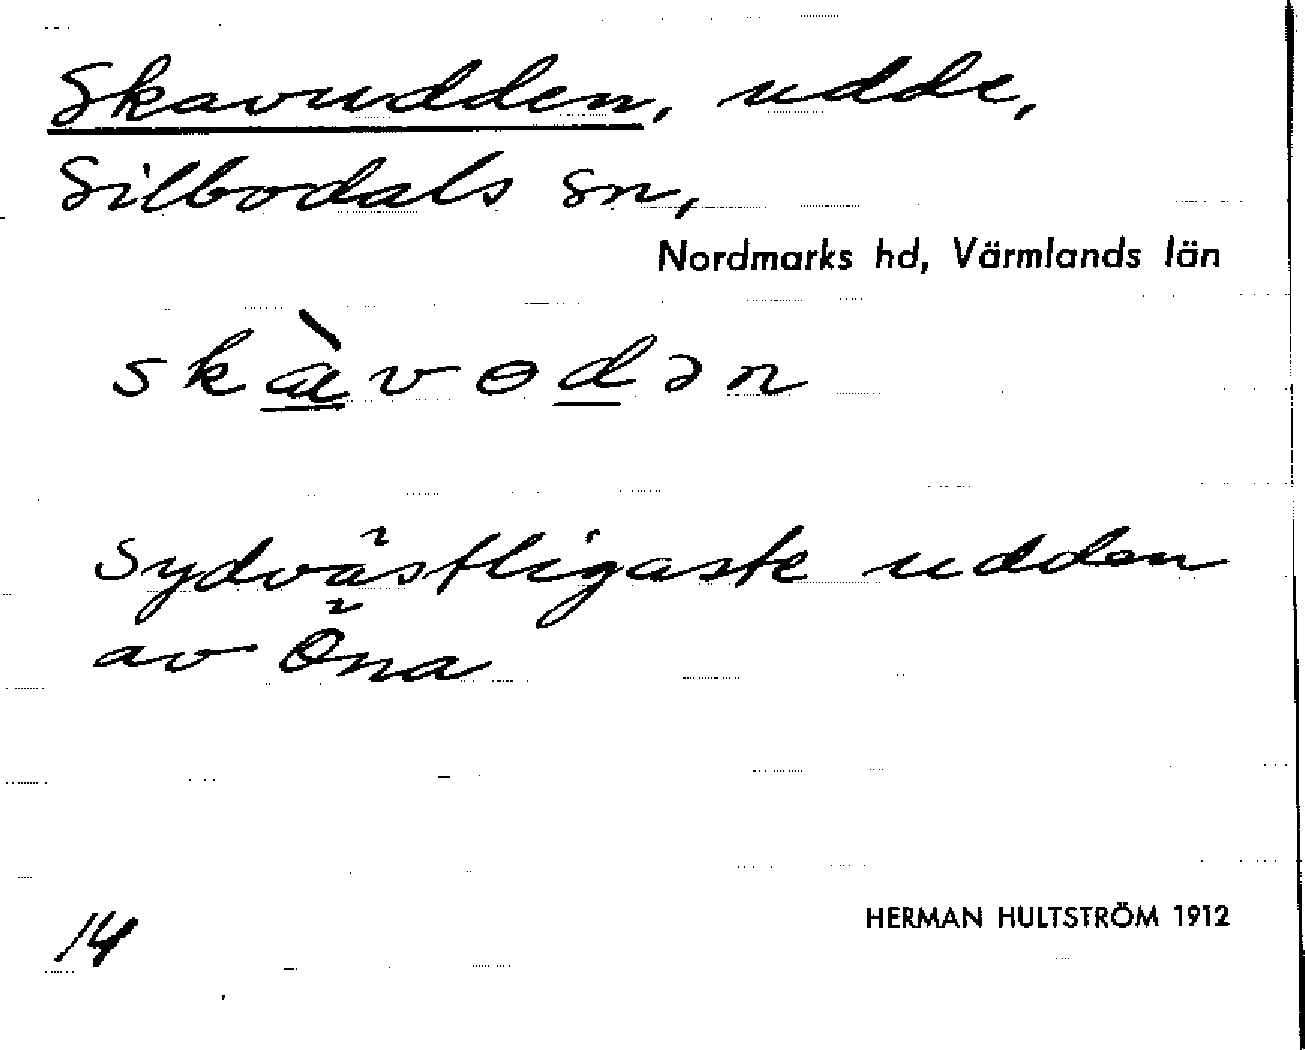 Skavudden, udde,
Silbodals sn,
Nordmarks hd, Värmlands län
skàvɵdən
Sydvästligaste udden
av Öna
14
HERMAN HULTSTRÖM 1912